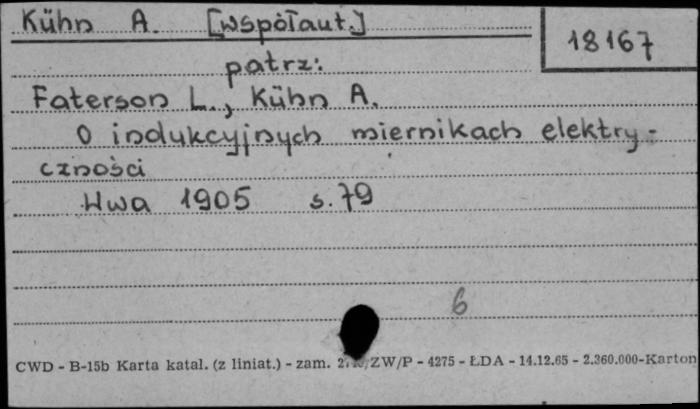 Kühn A. [współaut.]
18167
patrz:
Faterson L., Kühn A.
O indukcyjnych miernikach elektry-
czności
W-wa 1905 s. 79
6
CWD - B-15b Karta katal. (z liniat.) - zam. ZW/P - 4275 - ŁDA - 14.12.65 - 2.360.000-Karton